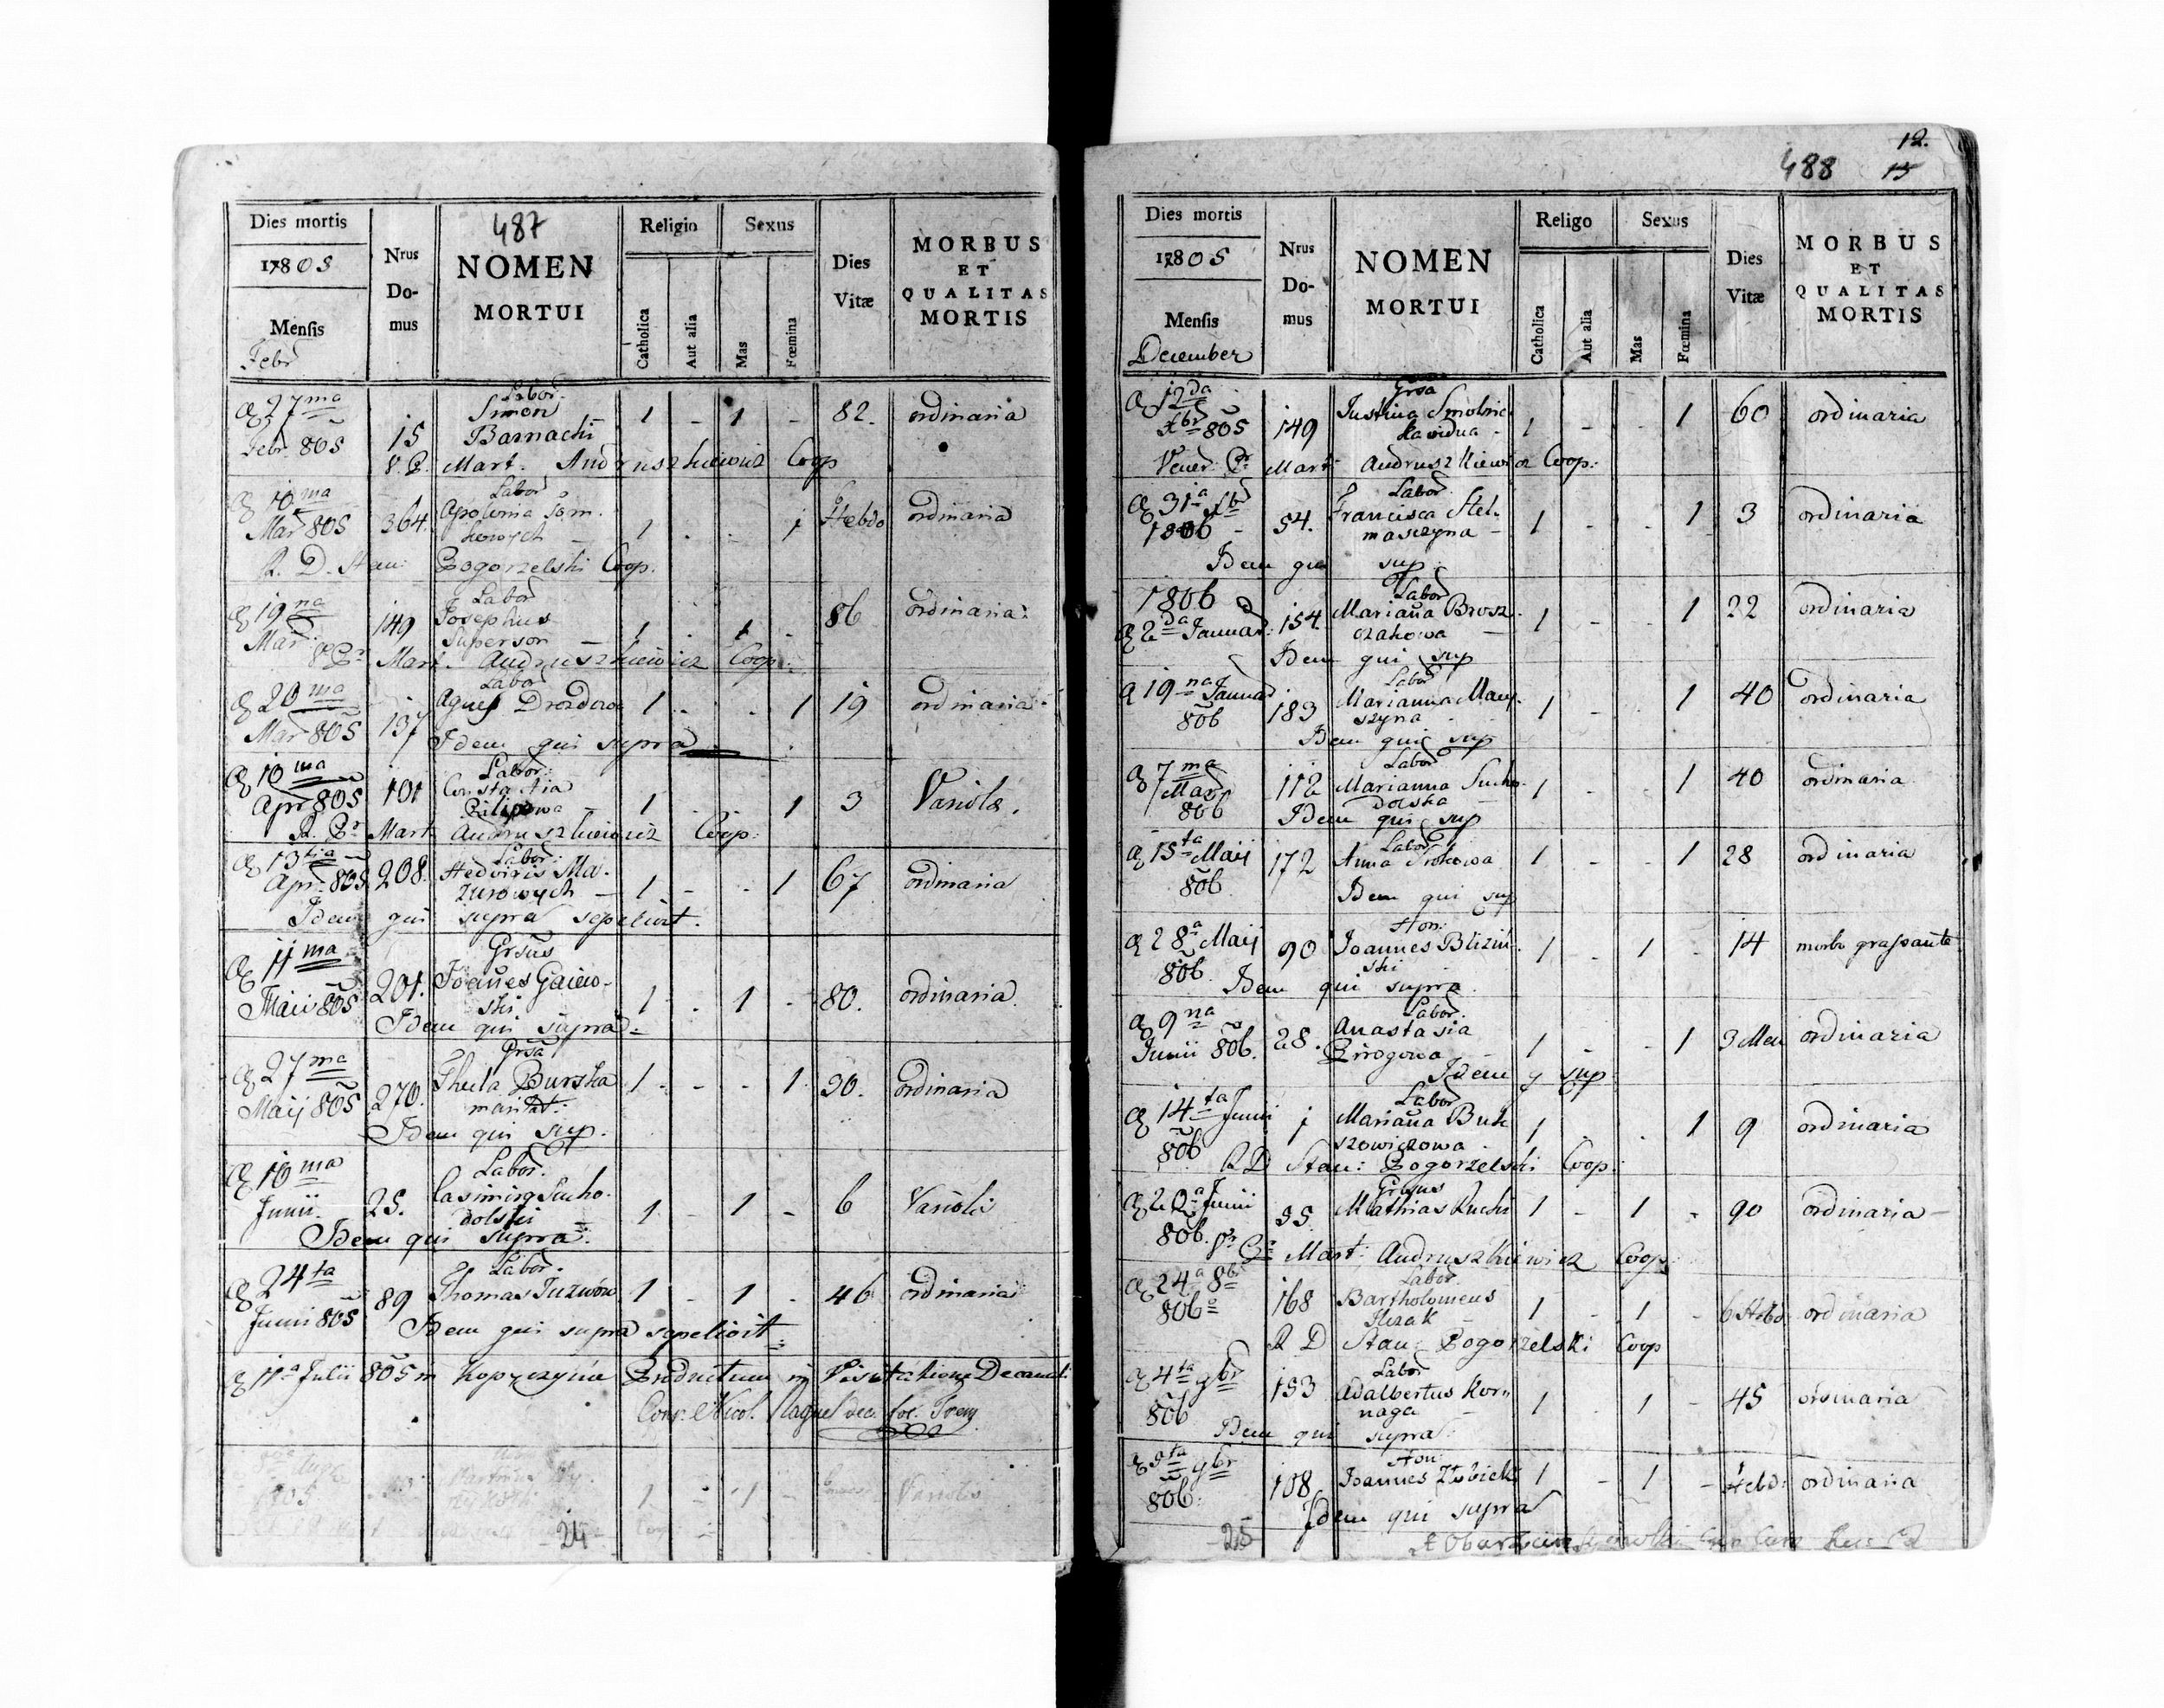 487
Dies mortis
1805
Mensis
Febr
Nrus
Do-
mus
NOMEN
MORTUI
Religio
Catholica
Aut alia
Sexus
Mas
Fœmina
Dies
Vitæ
MORBUS
ET
QUALITAS
MORTIS
Labor.
27ma Simon 1 - 1 - 82. ordinaria
Febr. 805 15 Barnacki
V. P. Mart. Andruszkiewicz Coop
Labor
10ma Apolonia Som.
Mar 805 364. kowych 1 . . 1 Hebdo ordinaria
R. D. Stan: Pogorzelski Coop.
Labor
19na Josephus 86 ordinaria:
Mar. 149 Superson - 1 . 1 -
Pr Mart. Andruszkiewicz Coop:
Labor
20ma Agnes Drozdowa 1 - . 1 19 ordinaria
Mar 805 137
Idem qui supra
Labor:
10ma 101 Constantia
Apr 805 Filipowa - 1 . . 1 3 Variola.
R. Pr Mart Andruszkiewicz Coop:
Labor:
13tia 208. Hedviris Ma-
Apr. 805 zurowych - 1 - . 1 67 ordinaria
Idem qui supra sepelivit.
Grsus
11ma Joañes Gaiew-
Maii 805 201. ski 1 . 1 - 80. ordinaria.
Idem qui supra
Grsa
27ma Thecla Burska 1 . - - 1 20. ordinaria
Maij 805 270. maritat:
Idem qui sup.
Labor.
10ma Casimirg Sucho-
Junii. 25. dolski 1 - 1 - 6 Variolis
Idem qui supra:
Labor.
24ta Thomas Juzwow 1 - 1 - 46 ordinaria
Junii 805 89
Idem qui supra sepelivit
11a Julii 805 in Kopyczynce Productum in Visitatione Decanal:
Nicol.
805 1 - 1 - Variolis
24
12.
488 15
Dies mortis
1805
Mensis
December
Nrus
Do-
mus
NOMEN
MORTUI
Religo
Catholica
Aut alia
Sexus
Mas
Fœmina
Dies
Vitæ
MORBUS
ET
QUALITAS
MORTIS
Grsa
12da Justina Smolnic
Xbr 805 149 ka vidua - 1 - - 1 60 ordinaria
Vener: Pr Mart Andruszkiewicz Coop:
Labor
31a Xbr Francisca Stel-
1806 - 54. maszyna - 1 - - 1 3 ordinaria
Idem qui sup
1806 Labor
2da Januar: 154. Mariaña Brosz-
czakowa - 1 - - 1 22 ordinaria
Idem qui sup
Labor
19na Januar Marianna May-
806 183 szyna 1 - . 1 40 ordinaria
Idem qui sup
Labor
7ma 112 Marianna Sucho-
Mar dolska - 1 - - 1 40 ordinaria
806 Idem qui sup
Labor
15ta Maij 172 Anna Srokowa 1 - - 1 28 ordinaria
806 Idem qui sup
Hon:
28a Maij 90 Joannes Blizin-
806. ski 1 - 1 - 14 morbo grassante
Idem qui supra.
Labor.
9na Anastasia
Junii 806. 28. Pirogowa 1 - - 1 3 Men ordinaria
Idem q sup
Labor
14ta Junii 1 Mariaña Buk
806 szowiczowa 1 . . 1 9 ordinaria
R D Stan: Pogorzelski Coop:
Grsus
20a Junii 35. Mathias Kucki 1 - 1 - 90 ordinaria -
806. Pr Mart: Andruszkiewicz Coop.
Labor.
24a 8br 168 Bartholomeus
806 1 - 1 - 6 Hebd ordinaria
R D Stan: Pogorzelski Coop
Labor
4ta 9br 153 Adalbertus Kor-
806 naga - 1 1 - 45 ordinaria
Idem qui supra
Hon:
9br 108 Joannes 1 - 1 - Hebd: ordinaria
806: Idem qui supra
25